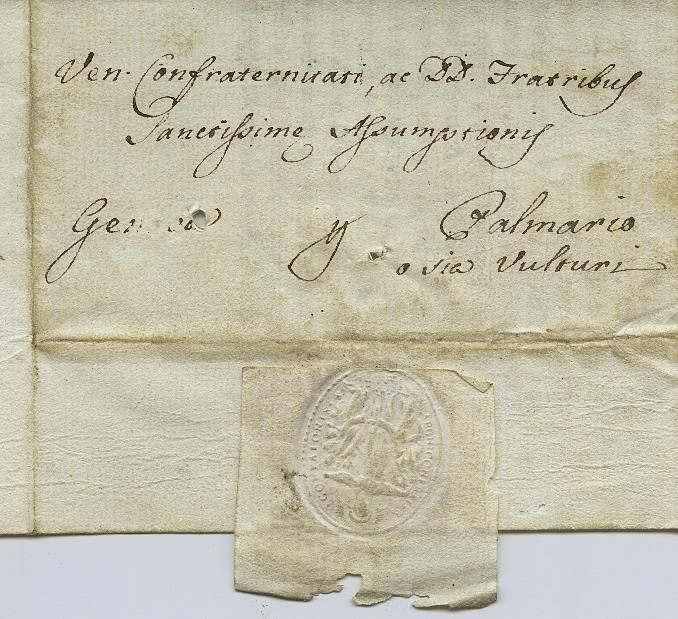 Ven. Confraternitati, ac DD. Fratribus
Sanctissime Assumptionis
Palmario
o sia Vulturi